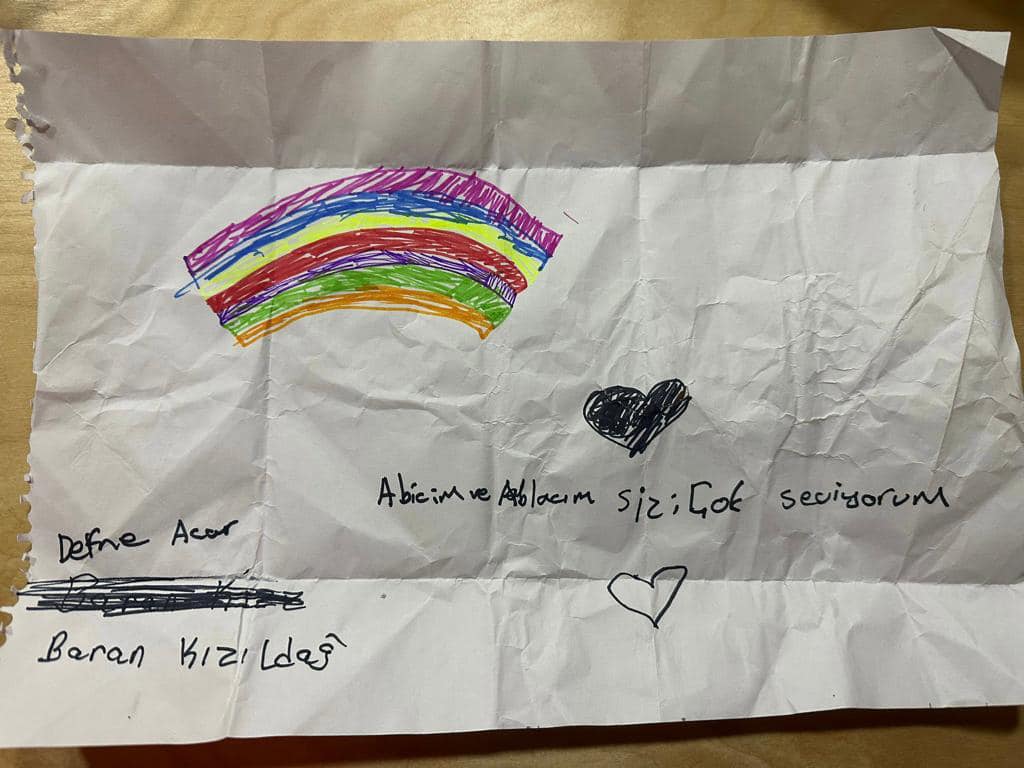 Abicim ve Ablacım sizi Çok seviyorum
Defne Acar
Baran Kızıldağ